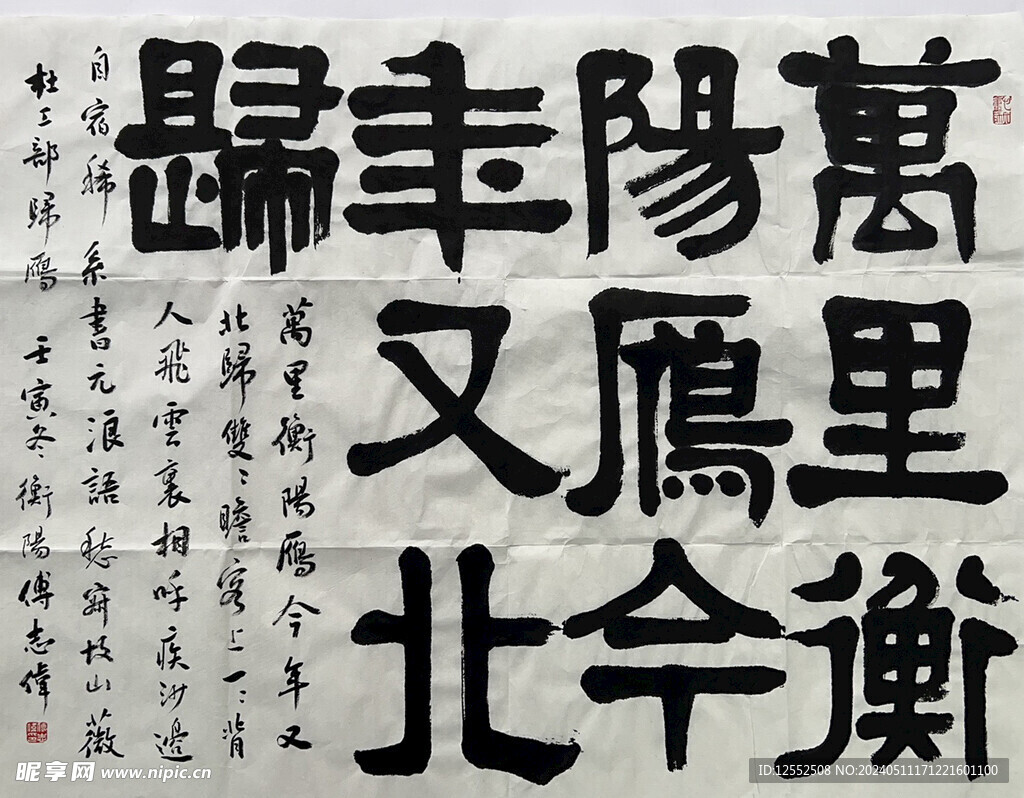 萬里衡
陽鴈今
年又北
歸
萬里衡陽鴈今年又
北歸雙〻瞻客上一〻背
人飛雲裏相呼疾沙邊
自宿稀系書元浪語愁寂故山薇
杜工部歸鴈 壬寅冬衡陽傅志偉
昵享网 www.nipic.cn
ID:12552508 NO:20240511171221601100